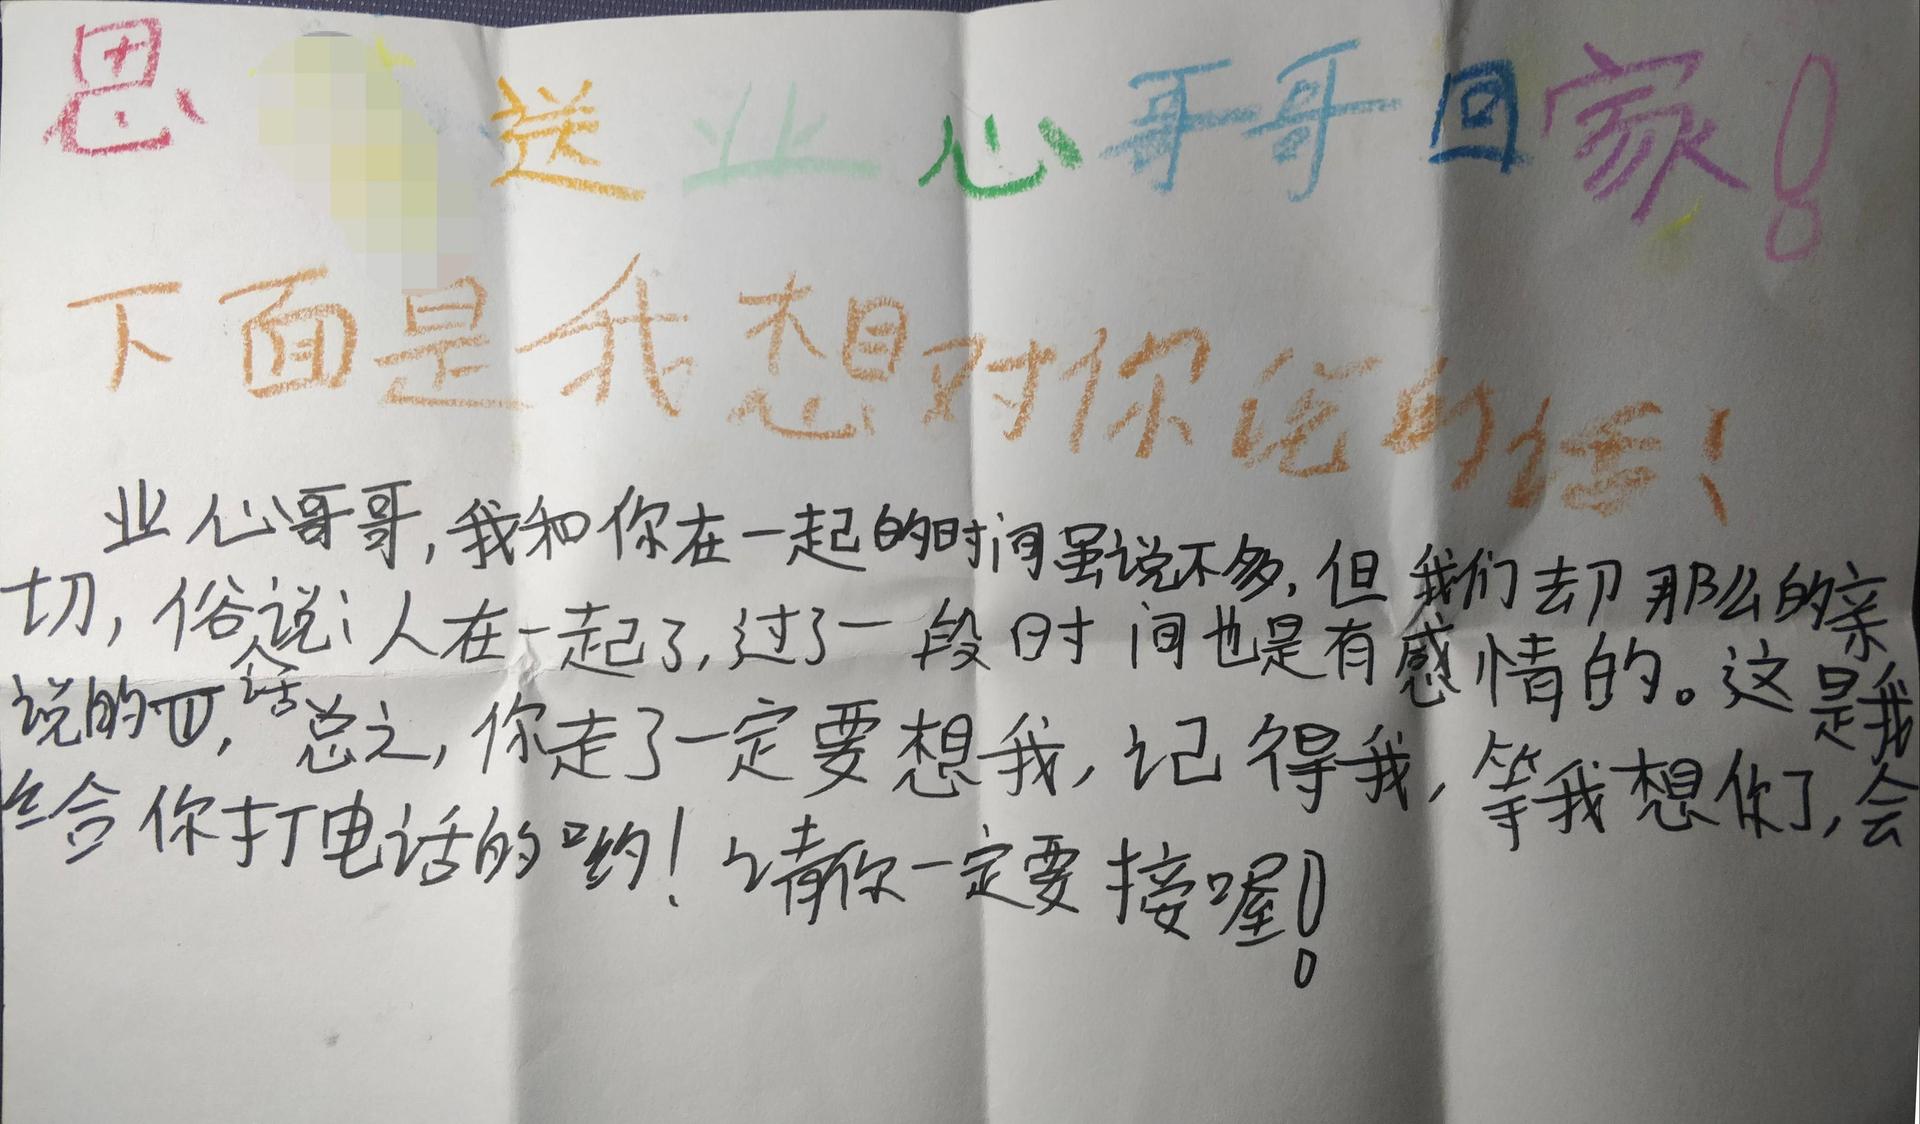 思 送业心哥哥回家!
下面是我想对你说的话!
业心哥哥,我和你在一起的时间虽说不多,但我们却那么的亲
切,俗话说:人在一起了,过了一段时间也是有感情的。这是我
说的,总之,你走了一定要想我,记得我,等我想你了,会
给你打电话的哟!请你一定要接喔!